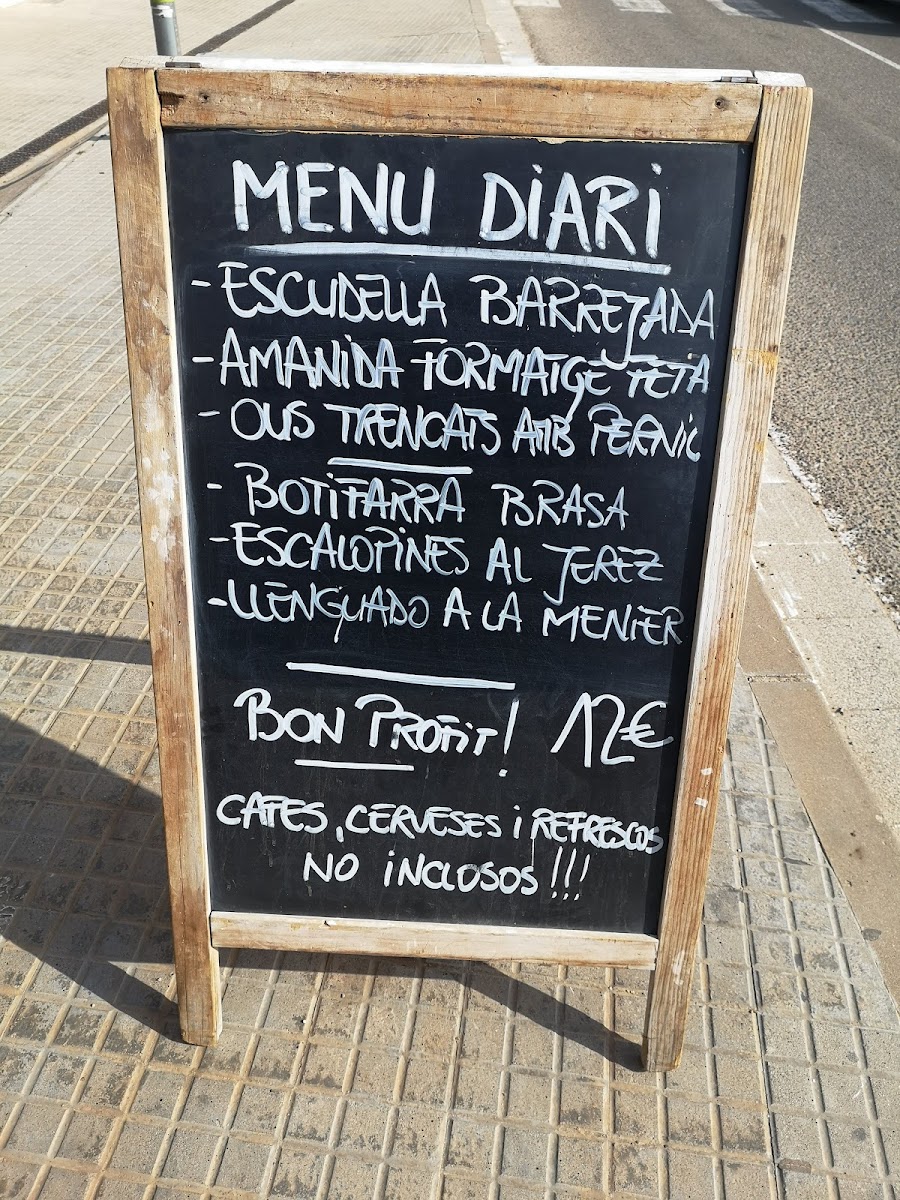 MENU DiARi
- ESCUDELLA BARREJADA
- AMANIDA FORMATGE FETA
- OUS TRENCATS AMB PERNIL
- BOTIFARRA BRASA
- ESCALOPINES AL JEREZ
- LLENGUADO A LA MENIER
BON PROFIT! 12€
CAFES, CERVESES i REFRESCOS
NO iNCLOSOS!!!